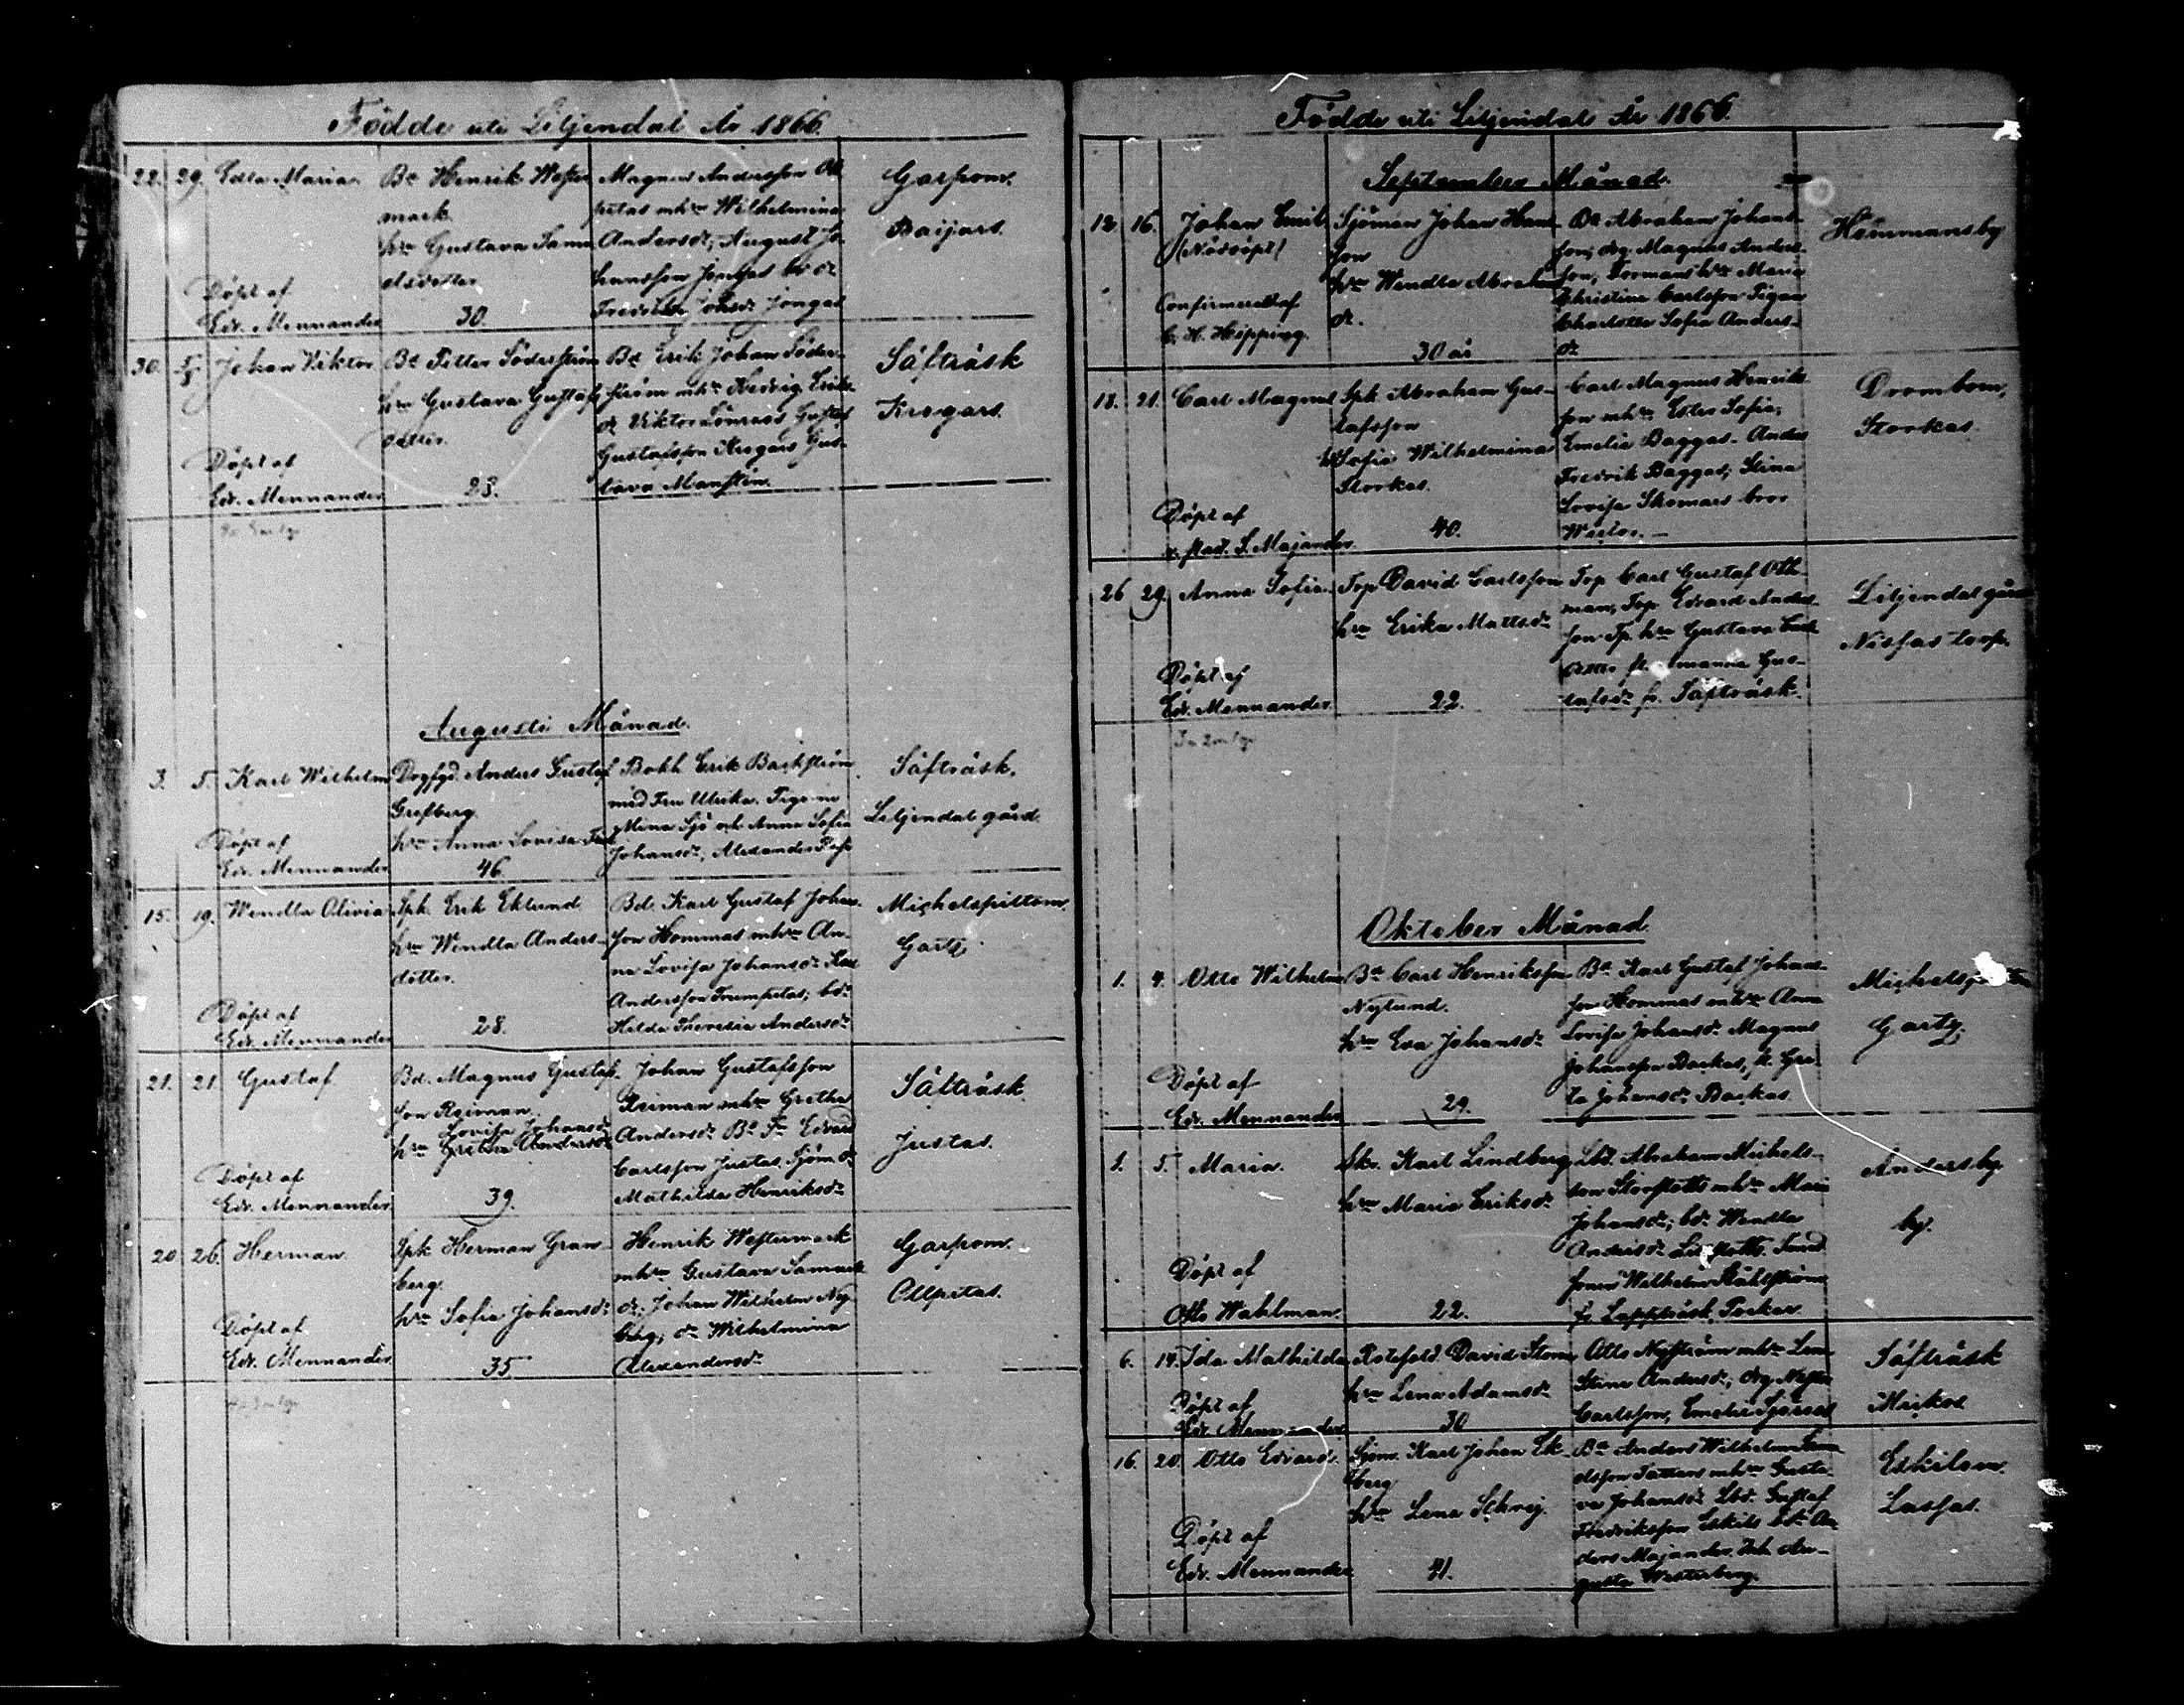 Födde uti Liljendal År 1866.
22. 29. Edla Maria.
Döpt af
Edv. Mennander
Bd Henrik Wester
mark
hru Gustava Samu
elsdotter
30.
Magnus Andersson Oll
pitas mhru Wilhelmina
Andersdr, August Jo
hansson Jongas
Fredrika Johsdr Jongas
Garpom.
Baijars.
30. 5/8 Johan Viktor
Döpt af
Edv. Mennander
Bd Petter Söderström
hru Gustava Gustafs
dotter.
23.
Bd Erik Johan Söder-
ström mhru Hedvig Eriks
dr Viktor Gustaf
Gustafsson Krogars Gus-
tava Manstén.
Säfträsk
Krogars.
Augusti Månad.
3. 5. Karl Wilhelm
Döpt af
Edv. Mennander
Anders Gustaf
Grefberg.
hru Anna Lovisa
46.
Bokh Erik Backström
med Fru Ulrika.
Mina Sjö och Anna Sofia
Johansdr, Alexander
Säfträsk.
Liljendal gård.
15. 19. Wendla Olivia
Döpt af
Edv. Mennander
Sph. Erik Eklund
hru Wendla Anders-
dotter.
28.
Bd. Karl Gustaf Johans-
son Hommas mhru An-
na Lovisa Johansdr Karl
Andersson Trumpetas; bdr
Hilda Theresia Andersdr
Michelspiltom.
Garts.
21. 21. Gustaf
Döpt af
Edv. Mennander
Bd. Magnus Gustafs-
son Reiman.
Lovisa Johansdr
hru Gretha Andersdr
39.
Johan Gustafsson
Reiman mhru Gretha
Andersdr Bd Sn Edvard
Carlsson Justas. Sjöm dr
Mathilda Henriksdr
Säfträsk.
Justas.
20 26. Herman.
Döpt af
Edv. Mennander.
Sph. Herman Gran-
berg.
hru Sofia Johansdr
35
Henrik Westermark
mhru Gustava Samuels
dr; Johan Wilhelm Ny-
berg; dr Wilhelmina
Alexandersdr
Garpom.
Ollpitas.
Födde uti Liljendal År 1866.
September Månad.
12 16. Johan Emil
(Nöddöpt)
Confirmerad af
C. H. Hipping.
Sjöman Johan Hans
son
hru Wendla Abrahams
dr.
30 år
Bd Abraham Johans-
son, drg. Magnus Anders
son, Tormans hdr Maria
Christina Carlsson Tigan
Charlotta Sofia Anders-
dr
Hommansby
18. 21. Carl Magnus
Döpt af
v. Past. S. Majander.
Sph. Abraham Gus-
tafsson
h Sofia Wilhelmina
Storkas.
40.
Carl Magnus Henriks
son mhru Ester Sofia;
Emelie Baggas. Anders
Fredrik Baggas; Stina
Lovisa Skomars bror
Drombom,
Storkas.
26 29. Anna Sofia.
Döpt af
Edv. Mennander.
Torp David Carlsson
hru Erika Mattsdr
22.
Torp Carl Gustaf Öth-
man, Torp Edvard Anders-
son Tp. hru Gustava Carls
dotter manna Gus-
tafsdr fr. Säfträsk.
Liljendal gård
Nissas torp.
Oktober Månad.
1. 4. Otto Wilhelm
Döpt af
Edv. Mennander
Bd Carl Henriksson
Nylund.
hru Eva Johansdr
29.
Bd Karl Gustaf Johans-
son Hommas mhru Anna
Lovisa Johansdr Magnus
Johansson Backas, fl. Gre
ta Johansdr Backas.
Garts.
1. 5. Maria.
Döpt af
Otto Wahlman.
Skr. Karl Lindberg
hru Maria Eriksdr
22.
Lbd. Abraham Michels-
son Storslotts mhru Maria
Johansdr; bdr Wendla
Andersdr
Wilhelm Ståhlström
fr Lappträsk, Pockar.
Andersby
by.
6. 14. Ida Mathilda
Döpt af
Edv. Mennander
David Storm
hru Lena Adamsdr
30
Otto Nyström mhru Lena
Stina Andersdr; drg
Carlsson, Emelie
Säfträsk
Mickos.
16. 20. Otto Edvard.
Döpt af
Edv. Mennander
Sjöm. Karl Johan Ek-
berg
hru Lena Schrey.
41.
Bd Anders Wilhelm Samu
elsson Tattars mhru Gusta-
va Johansdr Lbd. Gustaf
Fredriksson Eskils bdr An-
ders Majander. Inh. Au-
gusta Westerberg.
Eskilom.
Lassas.